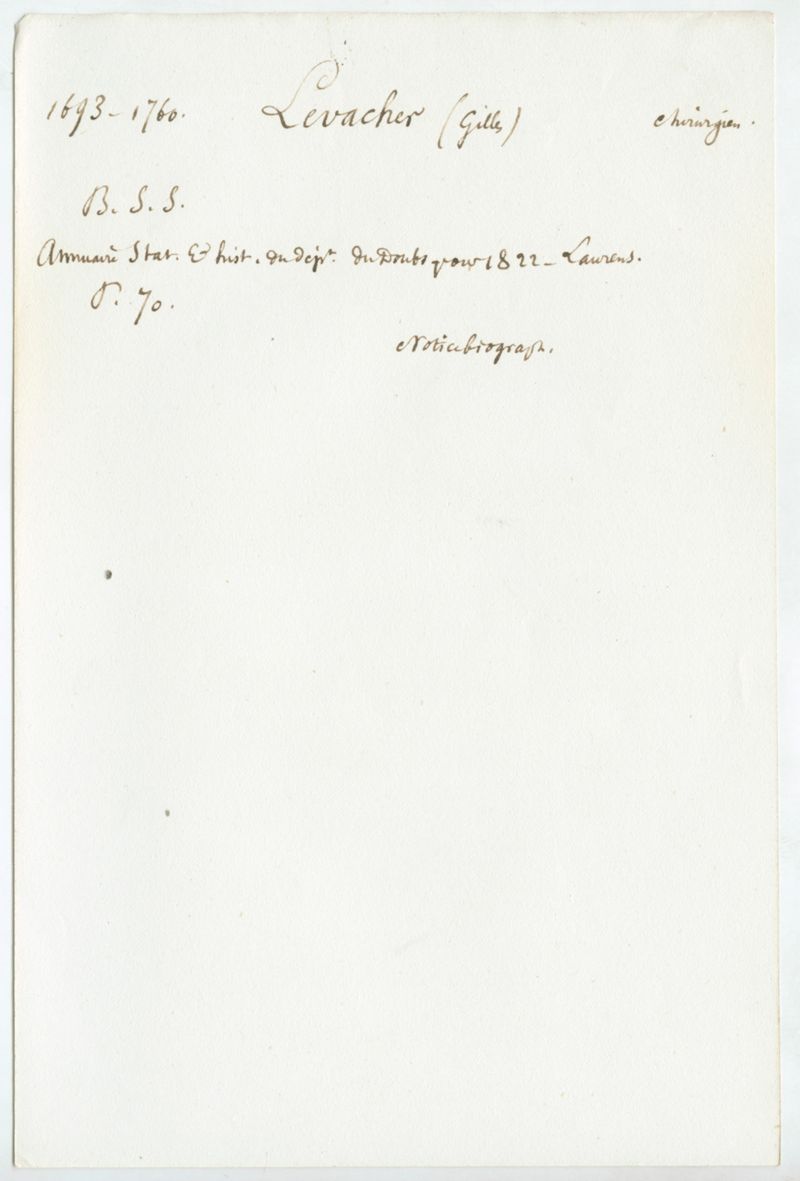 1693-1760. Levacher (Gilles) chirurgien.
B. S. S.
Annuaire Stat. & hist. du dépt. du Doubs pour 1822 - Laurens.
P. 70.
Notice biograph.